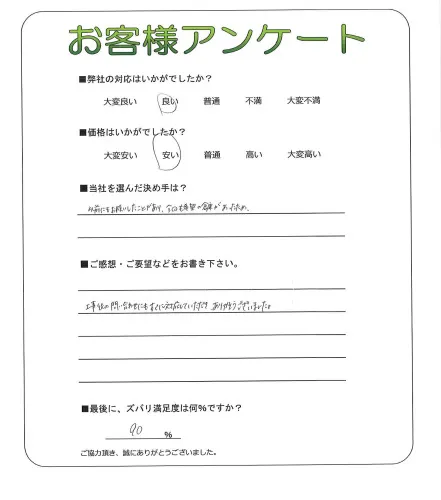 お客様アンケート
■弊社の対応はいかがでしたか？
大変良い 良い 普通 不満 大変不満
■価格はいかがでしたか？
大変安い 安い 普通 高い 大変高い
■当社を選んだ決め手は？
以前にもお願いしたことがあり、今回も希望の金額があったため。
■ご感想・ご要望などをお書き下さい。
工事後の問い合わせにもすぐに対応していただき ありがとうございました。
■最後に、ズバリ満足度は何％ですか？
90 %
ご協力頂き、誠にありがとうございました。